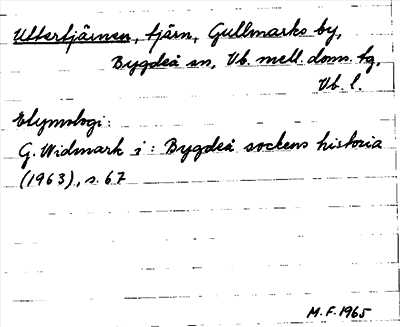 Uttertjärnen, tjärn, Gullmarks by,
Bygdeå sn, Vb. mell. doms. tg,
Vb. l.
Etymologi:
G. Widmark i: Bygdeå sockens historia
(1963), s. 67
M.F. 1965